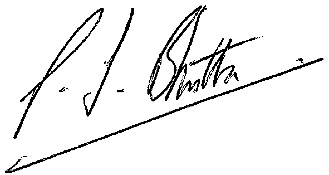 P. J. Bhatta